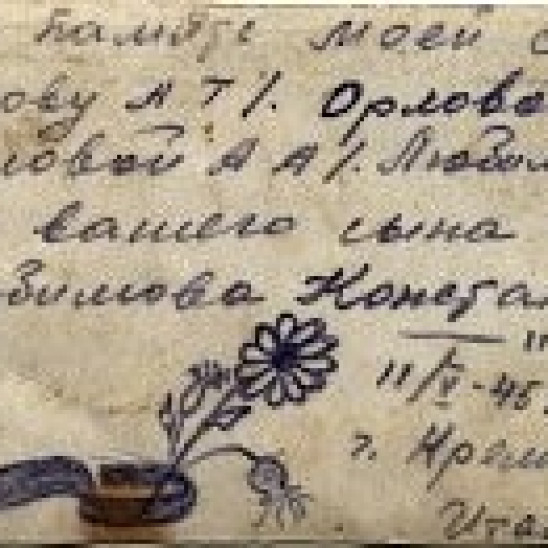 моей
ову А Т/. Орлова
ловой А А/. Любим
вашего сына
бимова Констан
11/V-45
г. Крем
Ита